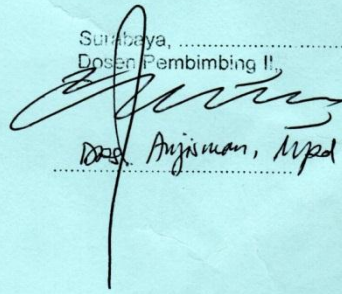 Surabaya, ......................
Dosen Pembimbing II,
Drs. Anjisman, Mpd
......................................